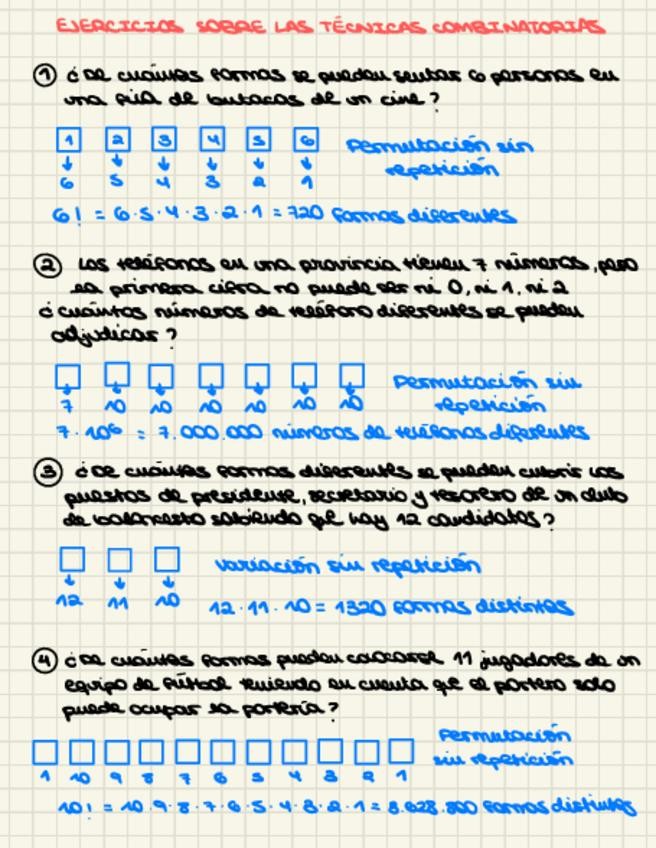 EJERCICIOS SOBRE LAS TÉCNICAS COMBINATORIAS
① ¿De cuántas formas se pueden sentar 6 personas en
una fila de butacas de un cine?
1 2 3 4 5 6 Permutación sin
↓ ↓ ↓ ↓ ↓ ↓ repetición
6 5 4 3 2 1
6! = 6·5·4·3·2·1 = 720 formas diferentes
② Los teléfonos en una provincia tienen 7 números, pero
la primera cifra no puede ser ni 0, ni 1, ni 2
¿cuántos números de teléfono diferentes se pueden
adjudicar?
Permutación sin
7 10 10 10 10 10 10 repetición
7·10⁶ = 7.000.000 números de teléfonos diferentes
③ ¿De cuántas formas diferentes se pueden cubrir los
puestos de presidente, secretario y tesorero de un club
de baloncesto sabiendo que hay 12 candidatos?
variación sin repetición
12 11 10 12·11·10 = 1320 formas distintas
④ ¿De cuántas formas pueden colocarse 11 jugadores de un
equipo de fútbol teniendo en cuenta que el portero solo
puede ocupar la portería?
Permutación
sin repetición
1 10 9 8 7 6 5 4 3 2 1
10! = 10·9·8·7·6·5·4·3·2·1 = 3.628.800 formas distintas